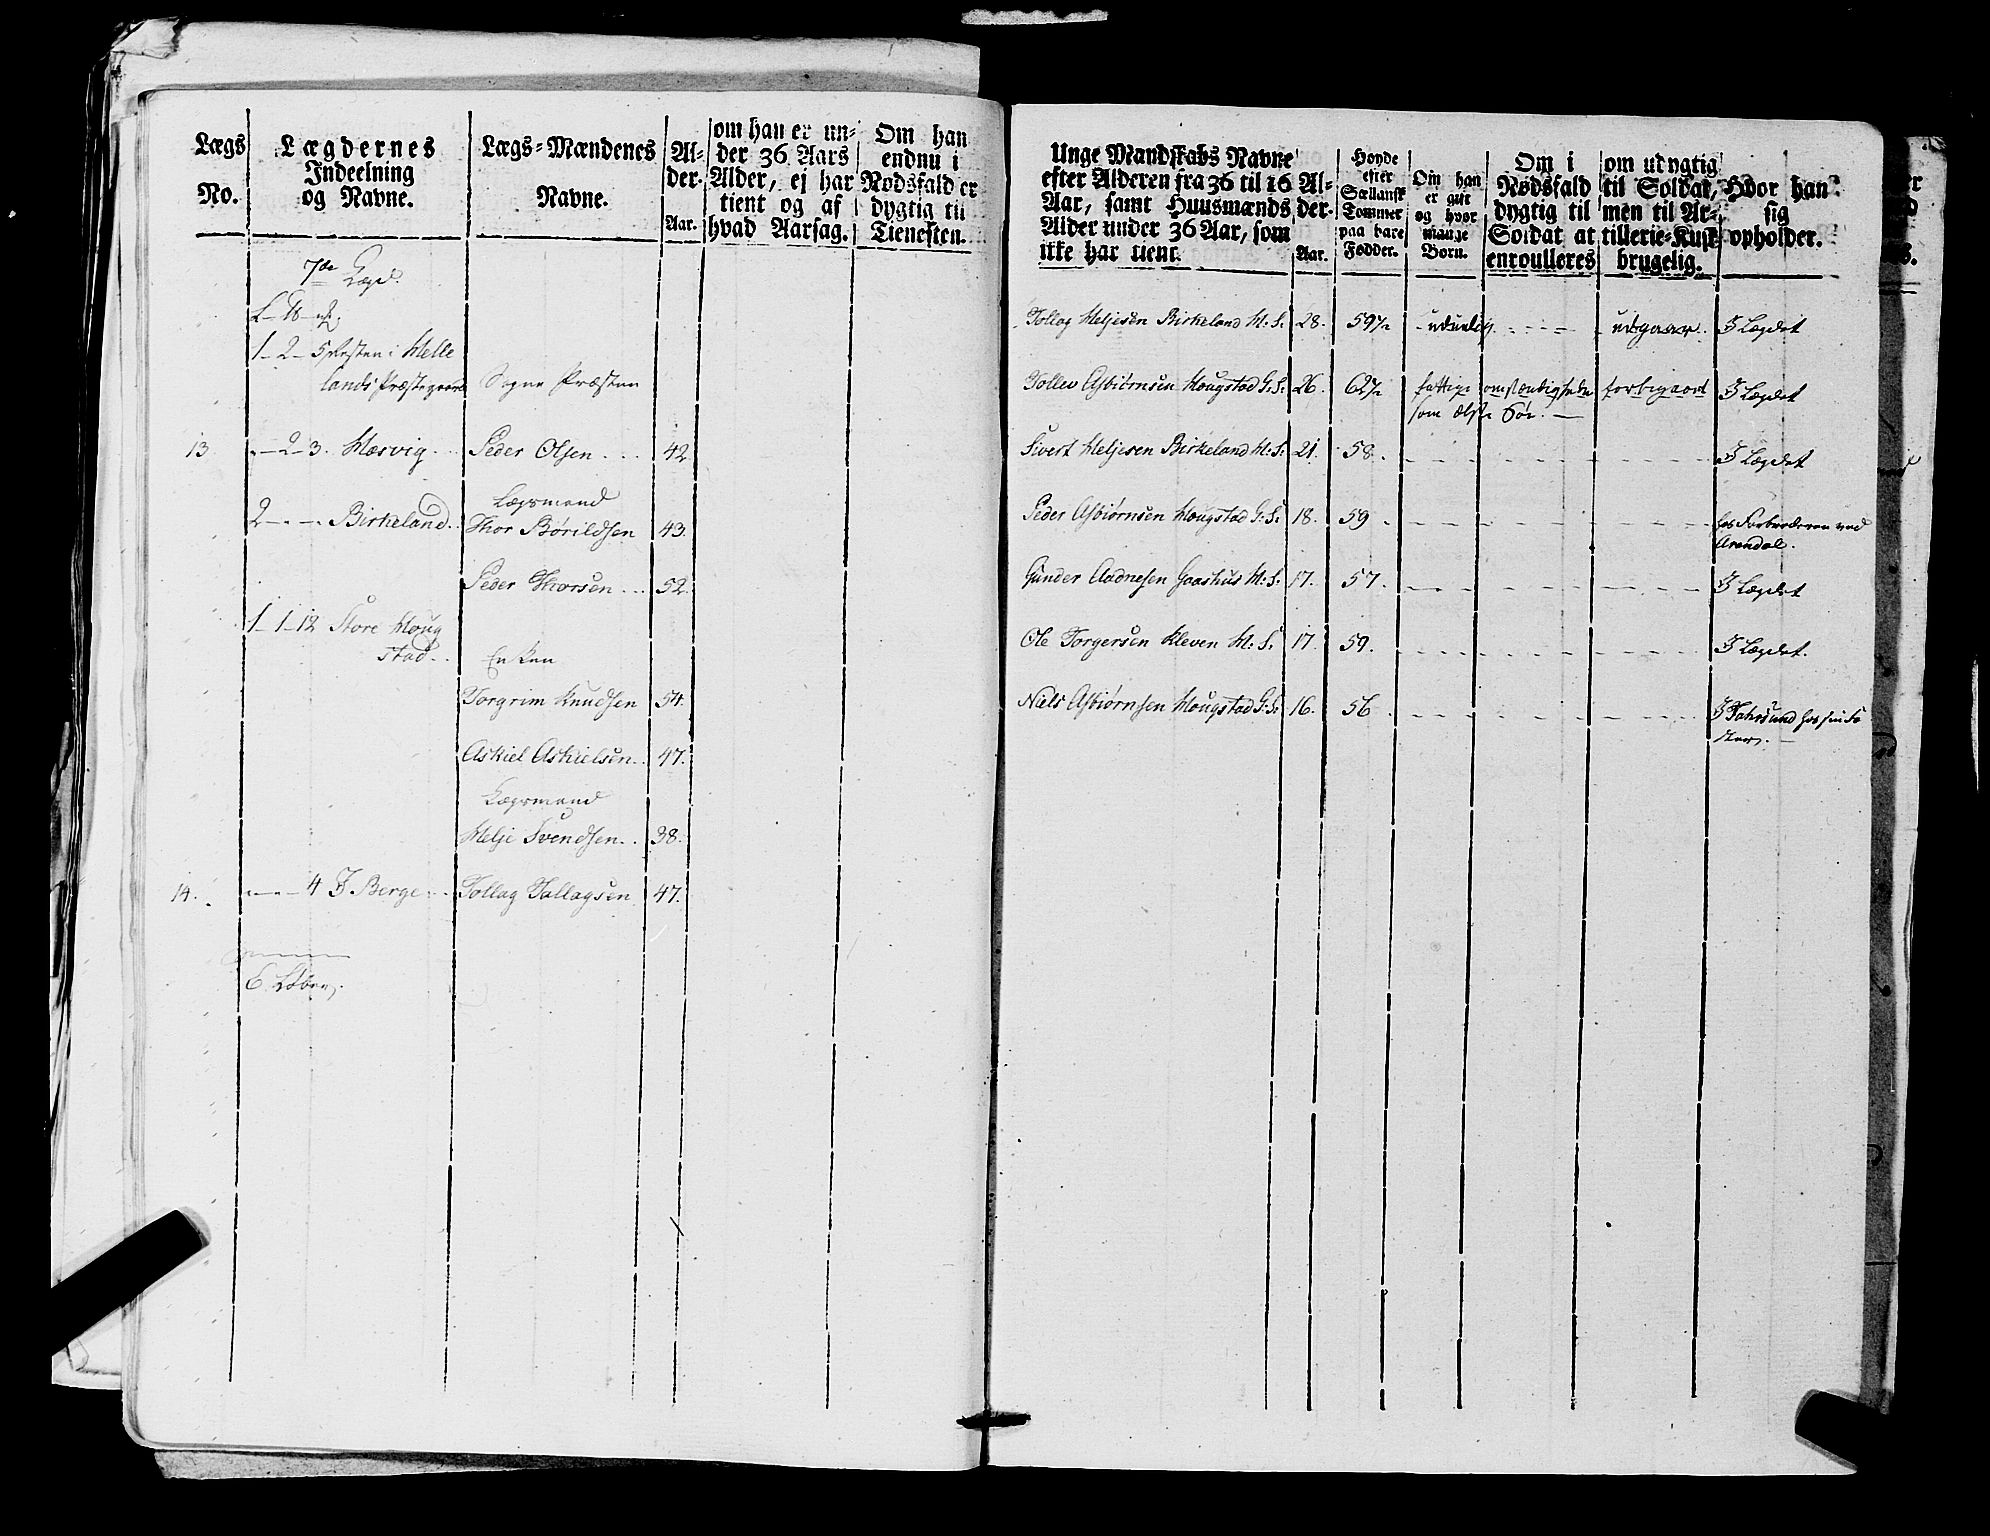 Lægs
No.
Lægdernes
Indeelning
og Navne.
Lægs-Mændenes
Navne.
Al-
der.
Aar.
om han er un-
der 36 Aars
Alder, ej har
tient og af
hvad Aarsag.
Om han
endnu i
Nødsfald er
dygtig til
Tienesten.
7de Lægd.
1-2-5 Resten i Helle
lands Præstegaard Sogne Præsten
13 - - 2 - 3. Mæsvig. Peder Olsen 42
Lægsmand
2 - - - Birkeland. Thor Børildsen 43.
Peder Thorsen 52.
1-1-12 Store Houg
stad. Enken
Torgrim Knudsen 54.
Askiel Askielsen 47.
Lægsmand
Helje Svendsen 38.
14. - - - 4 I Berge Tollag Tallagsen 47.
Unge Mandskabs Navne
efter Alderen fra 36 til 16
Aar, samt Huusmænds
Alder under 36 Aar, som
ikke har tient.
Al-
der.
Aar.
Høyde
efter
Siællansk
Tommer
paa bare
Fødder.
Om han
er gift
og hvor
mange
Børn.
Om i
Nødsfald
dygtig til
Soldat at
enroulleres
om udygtig
til Soldat,
men til Ar-
tillerie-Kusk
brugelig.
Hvor han
sig
opholder.
Tollag Heljesen Birkeland H: S. 28. 59½ udulig - - - udgaar. I Lægdet
Tollev Asbiörnsen Hougstad G: S. 26. 62½ fattige omstændigheder forbigaaet I Lægdet
som ælste Sön. -
Sivert Heljesen Birkeland H: S. 21. 58. I Lægdet
Peder Asbiørnsen Hougstad G: S. 18. 59 hos Farbroderen ved
Arendal.
Gunder Aadnesen Gaashus H: S. 17. 57. I Lægdet
Ole Torgersen Kleven H: S. 17. 59. I Lægdet.
Niels Asbiørnsen Hougstad G: S. 16. 56 I Fahrsund hos sin Sö
ster.